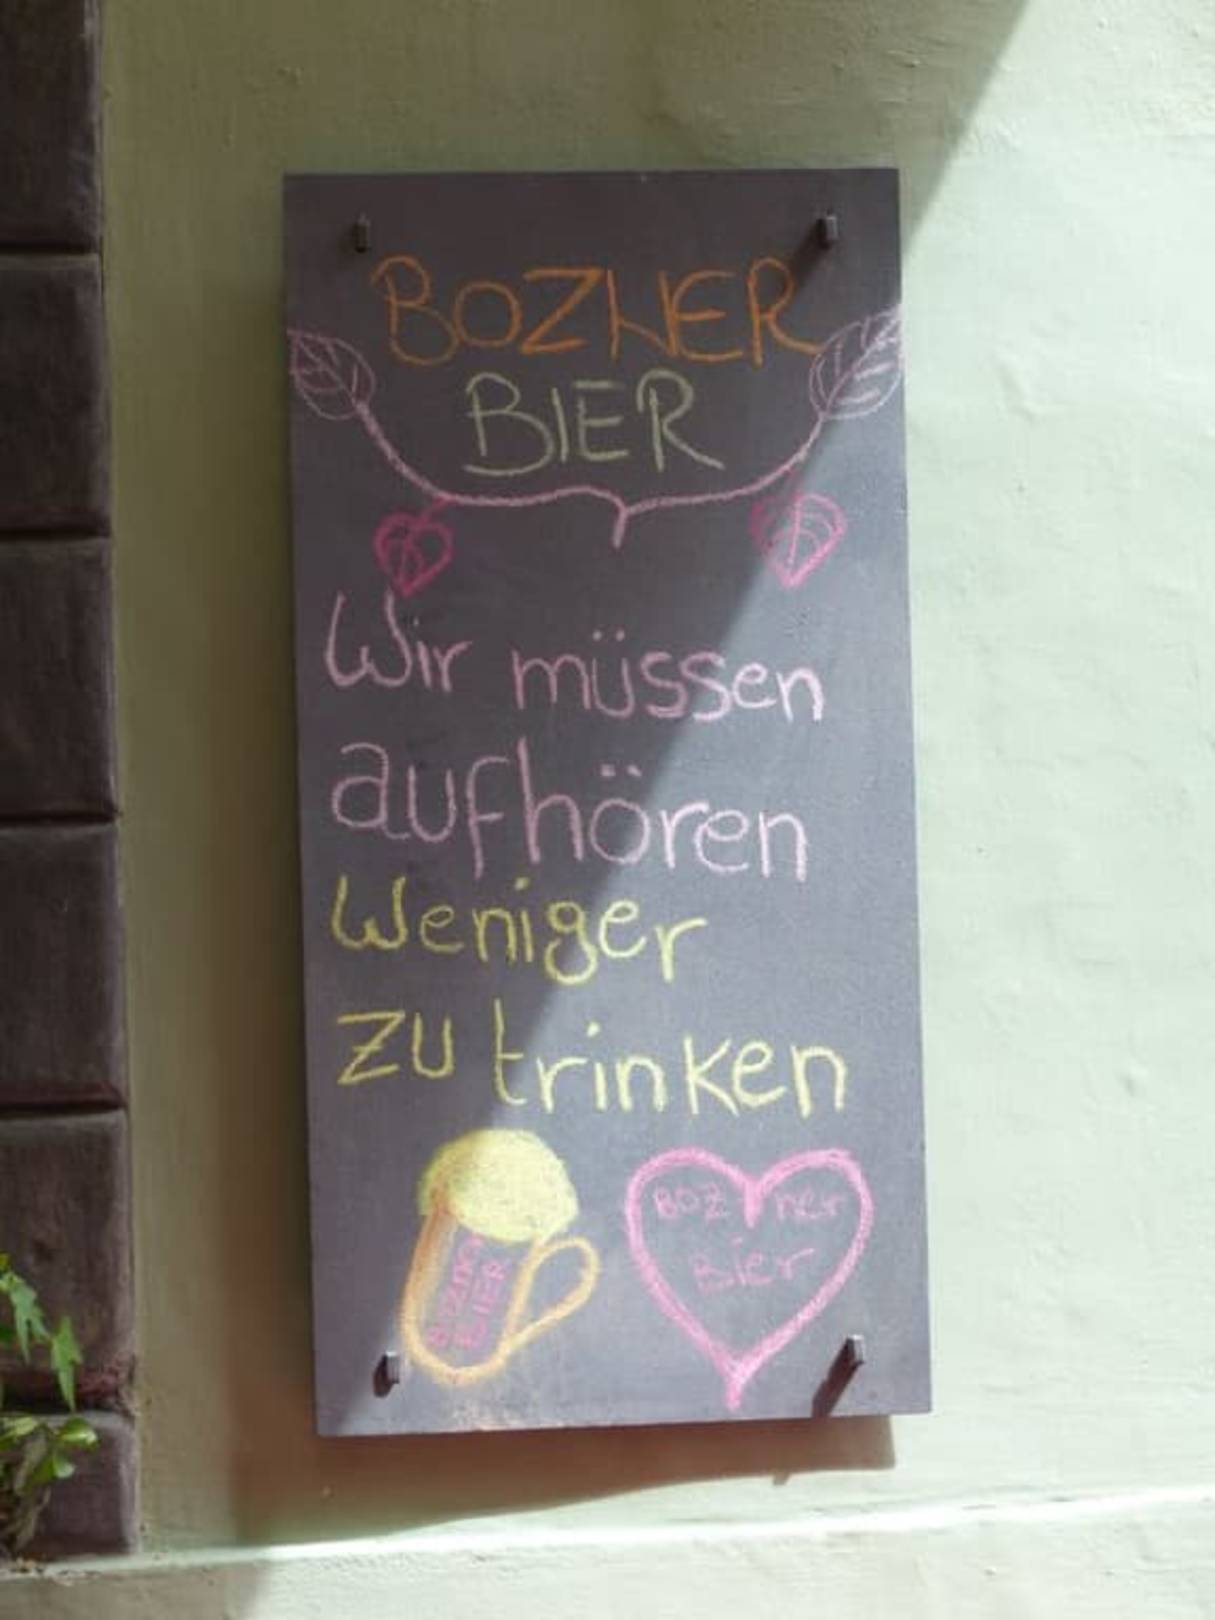 BOZNER
BIER
Wir müssen
aufhören
Weniger
zu trinken
BOZNER
BIER
BOZner
Bier